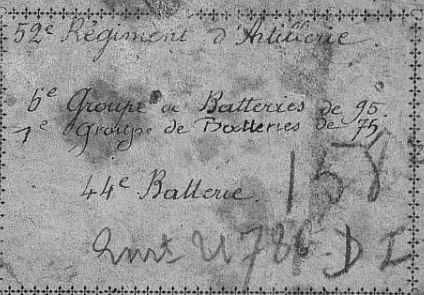 52e Régiment d'Artillerie.
6e Groupe de Batteries de 95.
1e Groupe de Batteries de 75
44e Batterie.
158
D I